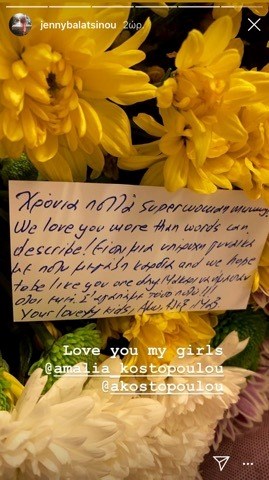 jennybalatsinou 2ώρ.
Χρόνια πολλά superwoman
We love you more than words can
describe! Είσαι μια υπέροχη γυναίκα
με πολύ μεγάλη καρδιά and we hope
to be like you one day
όλοι
Your lovely kids,
Love you my girls
@amalia_kostopoulou
@akostopoulou